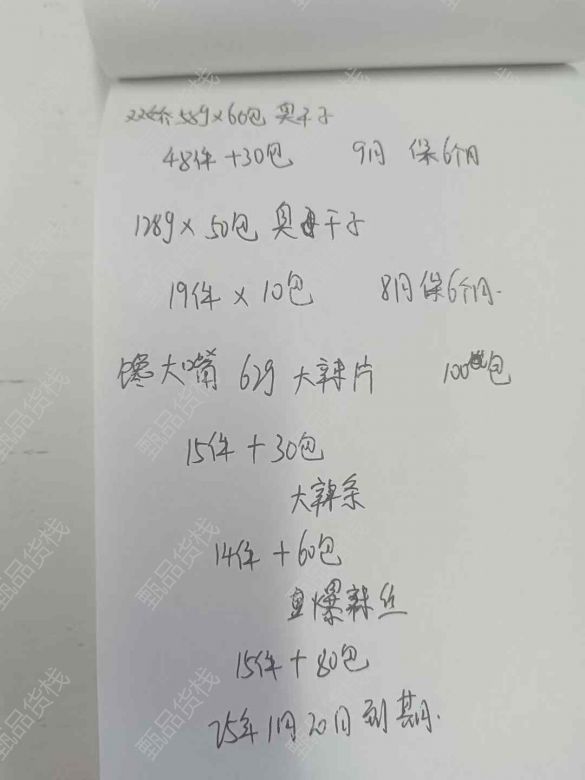 58g×60包 臭干子
48件+30包 9月 保6个月
128g×50包 臭干子
19件×10包 8月保6个月.
馋大嘴 62g 大辣片 100包
15件+30包
大辣条
14件+60包
爆辣丝
15件+80包
25年1月20日到其月.
甄品货栈